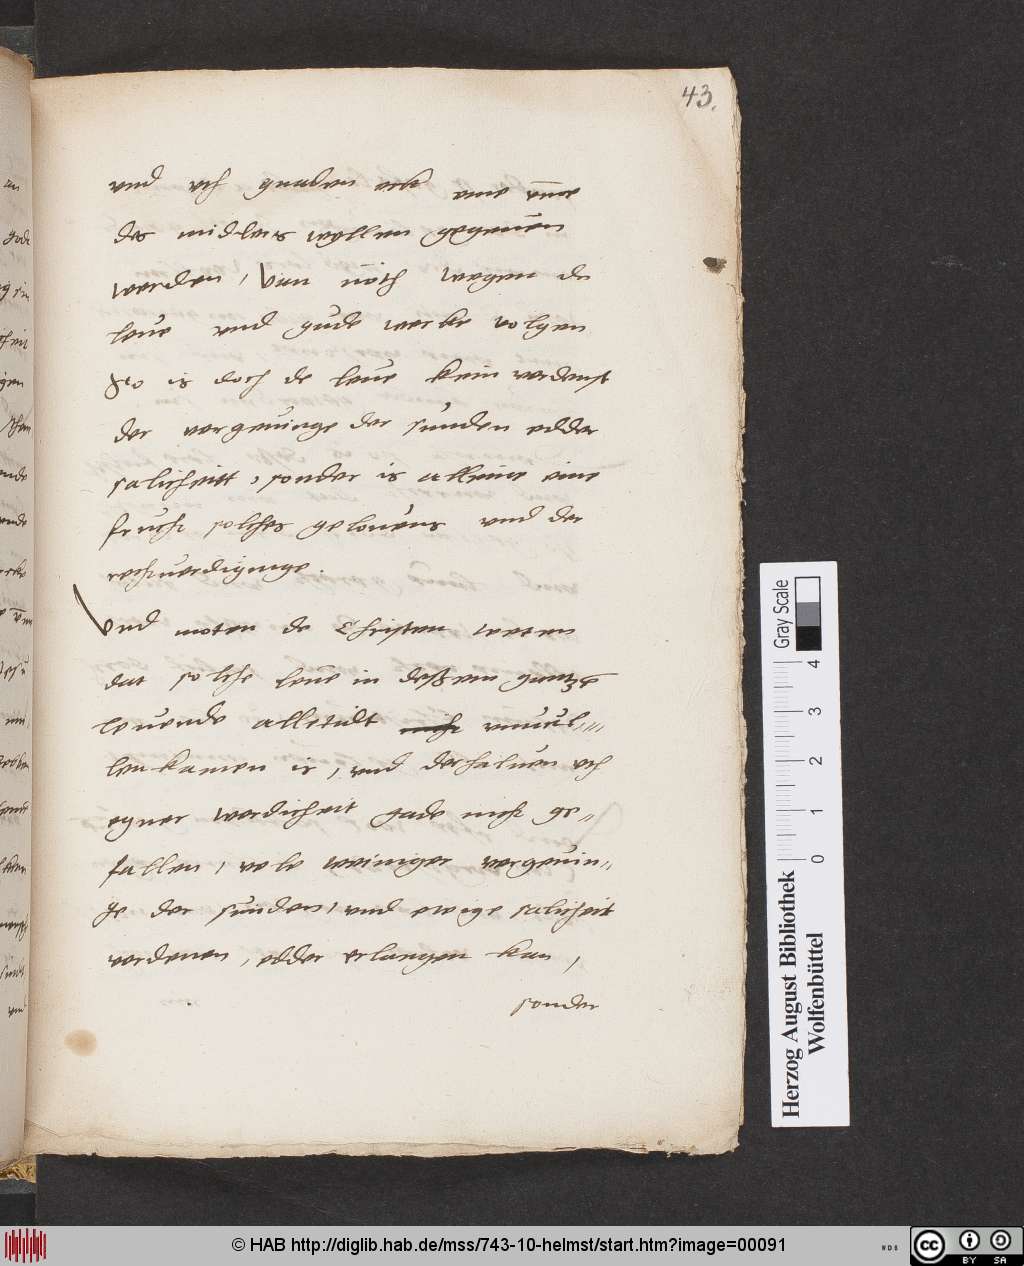 43.
vnd vth gnaden vth eme vm̄e
des midlers wyllen gegeuen
werden, Van nöth wegen de
leue vnd gude wercke volgen
So is doch de leue kein verdenst
der vergeuinge der sunden edder
salicheitt, sonder is alleine eine
frucht solches gelouens vnd der
rechtuerdiginge.
Vnd moten de Christen weten
dat solche leue in dessem gantze
leuende alletidt vnuul„
lenkamen is, vnd derhaluen vth
egner werdicheit gade nicht ge„
fallen, vele weiniger vergeuin„
ge der sunden, vnd ewige salicheit
vordenen, edder erlangen kan,
sonder
Herzog August Bibliothek
Wolfenbüttel
0 1 2 3 4
Gray Scale
© HAB http://diglib.hab.de/mss/743-10-helmst/start.htm?image=00091
cc BY SA